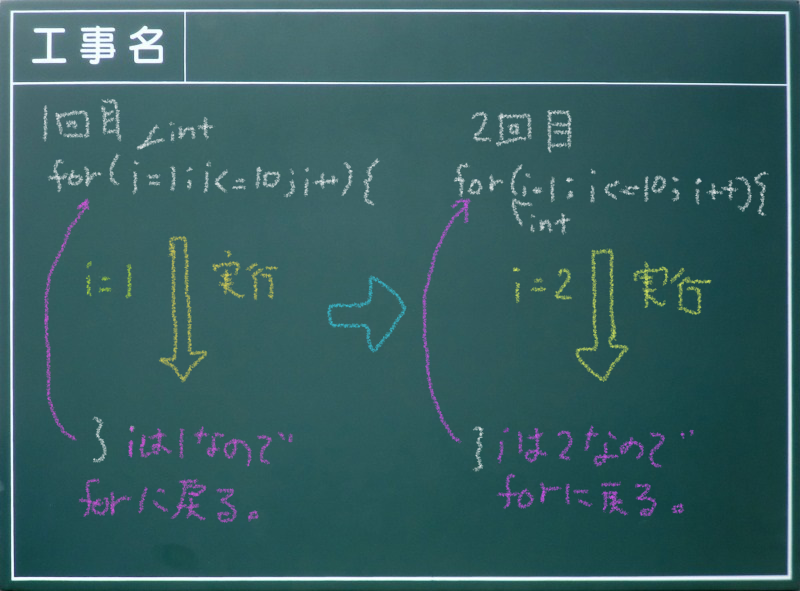 工事名
1回目
int
for(i=1;i<=10;i++){
i=1 実行
} iは1なので
forに戻る。
2回目
for(i=1;i<=10;i++){
int
i=2 実行
} iは2なので
forに戻る。